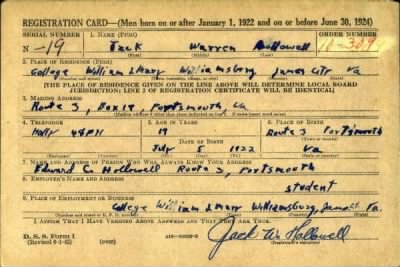 REGISTRATION CARD—(Men born on or after January 1, 1922 and on or before June 30, 1924)
SERIAL NUMBER 1. NAME (Print) ORDER NUMBER
N-19 Jack Warren Hollowell
(First) (Middle) (Last)
2. PLACE OF RESIDENCE (Print)
College William & Mary Williamsburg James City Va
[THE PLACE OF RESIDENCE GIVEN ON THE LINE ABOVE WILL DETERMINE LOCAL BOARD
JURISDICTION; LINE 2 OF REGISTRATION CERTIFICATE WILL BE IDENTICAL]
3. MAILING ADDRESS
Route 3, Box 19, Portsmouth, Va
4. TELEPHONE 5. AGE IN YEARS 6. PLACE OF BIRTH
19 Route 3 Portsmouth
DATE OF BIRTH
July 5 1922 Va
7. NAME AND ADDRESS OF PERSON WHO WILL ALWAYS KNOW YOUR ADDRESS
Edward C. Hollowell Route 3, Portsmouth
8. EMPLOYER'S NAME AND ADDRESS
student
9. PLACE OF EMPLOYMENT OR BUSINESS
College William & Mary Williamsburg, Va.
I AFFIRM THAT I HAVE VERIFIED ABOVE ANSWERS AND THAT THEY ARE TRUE.
D. S. S. Form 1
(Revised 6-1-42) (over)
Jack W. Hollowell
(Registrant's signature)